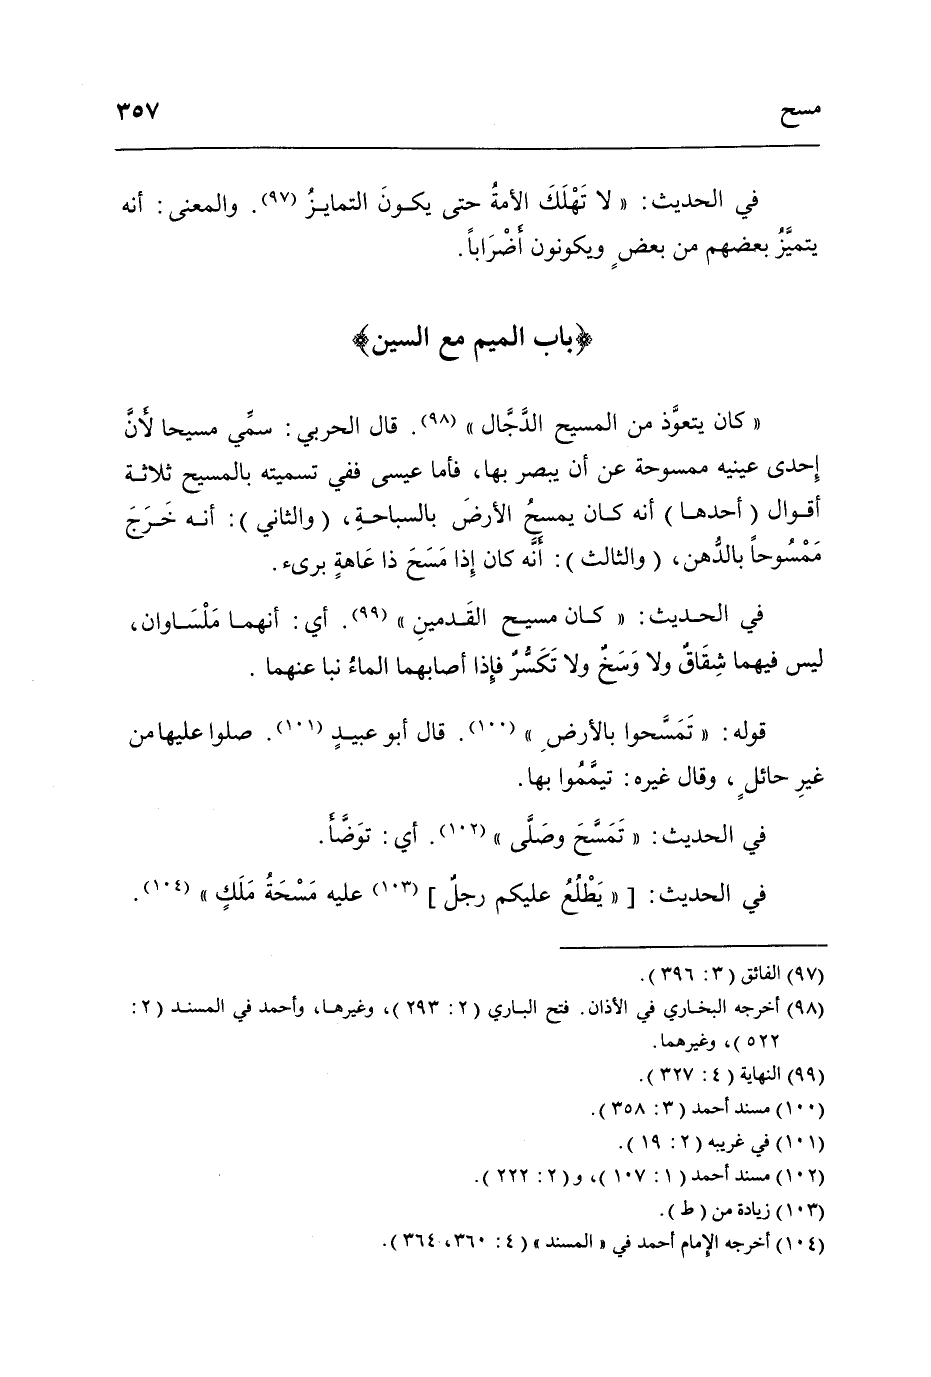 مسح ٣٥٧
في الحديث: « لا تَهْلَكَ الأمةُ حتى يكونَ التمايزُ (٩٧). والمعنى: أنه
يتميَّزُ بعضهم من بعضٍ ويكونون أَضْرَاباً.
﴿باب الميم مع السين﴾
« كان يتعوَّذ من المسيح الدَّجَّال » (٩٨). قال الحربي: سمِّي مسيحا لأنَّ
إحدى عينيه ممسوحة عن أن يبصر بها، فأما عيسى ففي تسميته بالمسيح ثلاثة
أقوال (أحدها) أنه كان يمسحُ الأرضَ بالسباحةِ، (والثاني): أنه خَرَجَ
مَمْسُوحاً بالدُّهن، (والثالث): أنَّه كان إذا مَسَحَ ذا عَاهةٍ برىء.
في الحديث: « كان مسيح القَدمينِ » (٩٩). أي: أنهما مَلْسَاوان،
ليس فيهما شِقَاقٌ ولا وَسَخٌ ولا تَكَسُّرٌ فإذا أصابهما الماءُ نبا عنهما .
قوله: « تَمَسَّحوا بالأرضِ » (١٠٠). قال أبو عبيدٍ (١٠١). صلوا عليها من
غيرِ حائلٍ، وقال غيره: تيمَّمُوا بها.
في الحديث: « تَمَسَّحَ وصَلَّى » (١٠٢). أي: توَضَّأَ.
في الحديث: [ « يَطْلُعُ عليكم رجلٌ ] (١٠٣) عليه مَسْحَةُ مَلَكٍ » (١٠٤).
(٩٧) الفائق (٣: ٣٩٦).
(٩٨) أخرجه البخاري في الأذان. فتح الباري (٢: ٢٩٣)، وغيرها، وأحمد في المسند (٢:
٥٢٢)، وغيرهما.
(٩٩) النهاية (٤: ٣٢٧).
(١٠٠) مسند أحمد (٣: ٣٥٨).
(١٠١) في غريبه (٢: ١٩).
(١٠٢) مسند أحمد (١: ١٠٧)، و(٢: ٢٢٢).
(١٠٣) زيادة من (ط).
(١٠٤) أخرجه الإمام أحمد في « المسند » (٤: ٣٦٠، ٣٦٤).